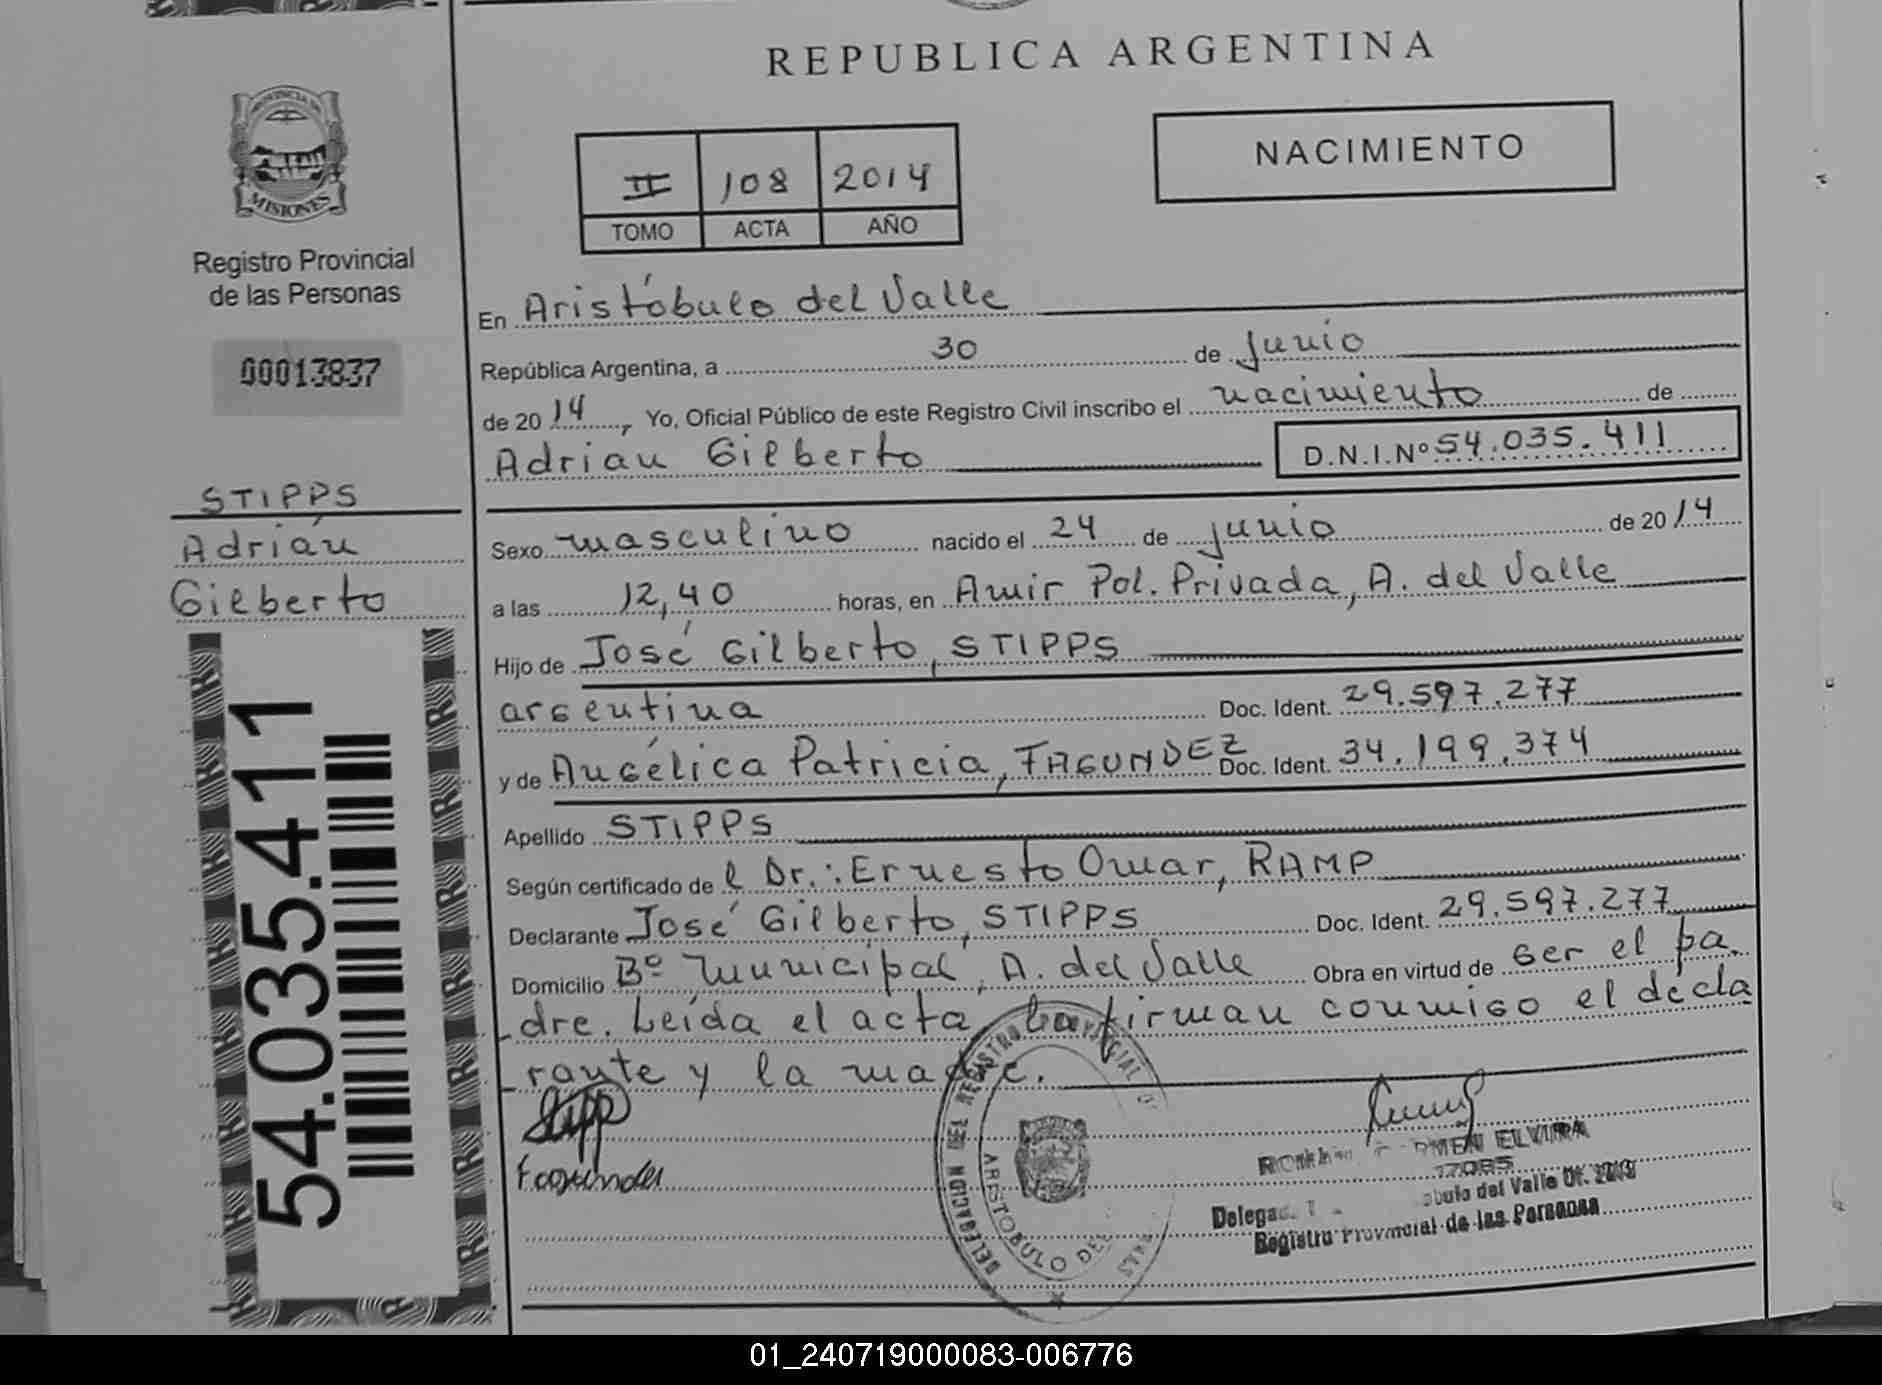 REPUBLICA ARGENTINA
PROVINCIA DE
MISIONES
Registro Provincial
de las Personas
00013837
STIPPS
Adrián
Gilberto
54.035.411
NACIMIENTO
II 108 2014
TOMO ACTA AÑO
En Aristóbulo del Valle
República Argentina, a 30 de junio
de 2014, Yo, Oficial Público de este Registro Civil inscribo el nacimiento de
Adrian Gilberto D.N.I.Nº 54.035.411
Sexo masculino nacido el 24 de junio de 2014
a las 12,40 horas, en Amir Pol. Privada, A. del Valle
Hijo de José Gilberto, STIPPS
argentina Doc. Ident. 29.597.277
y de Angélica Patricia, FAGUNDEZ Doc. Ident. 34.199.374
Apellido STIPPS
Según certificado de l Dr.: Ernesto Omar, RAMP
Declarante José Gilberto, STIPPS Doc. Ident. 29.597.277
Domicilio Bº Municipal, A. del Valle Obra en virtud de ser el pa
dre. Leída el acta, la firman conmigo el decla
rante y la madre.
Stipp
Fagundez
DELEGACION DEL REGISTRO PROVINCIAL
ARISTOBULO DEL VALLE
CARMEN ELVIRA
del Valle Of.
Registro Provincial de las Personas
01_240719000083-006776